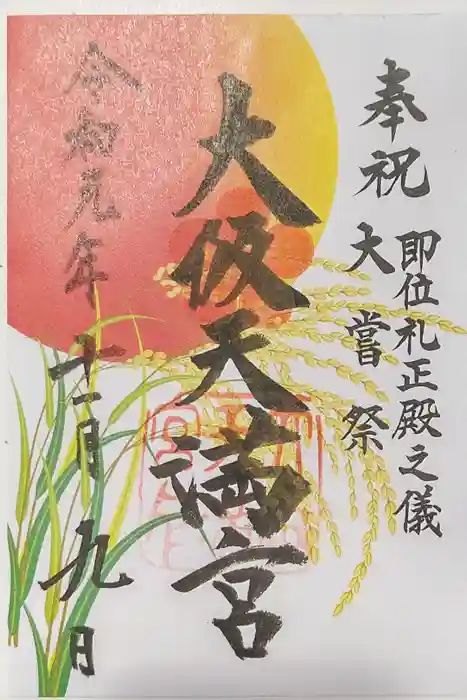 奉祝
即位礼正殿之儀
大嘗祭
大仮天満宮
令和元年十一月九日